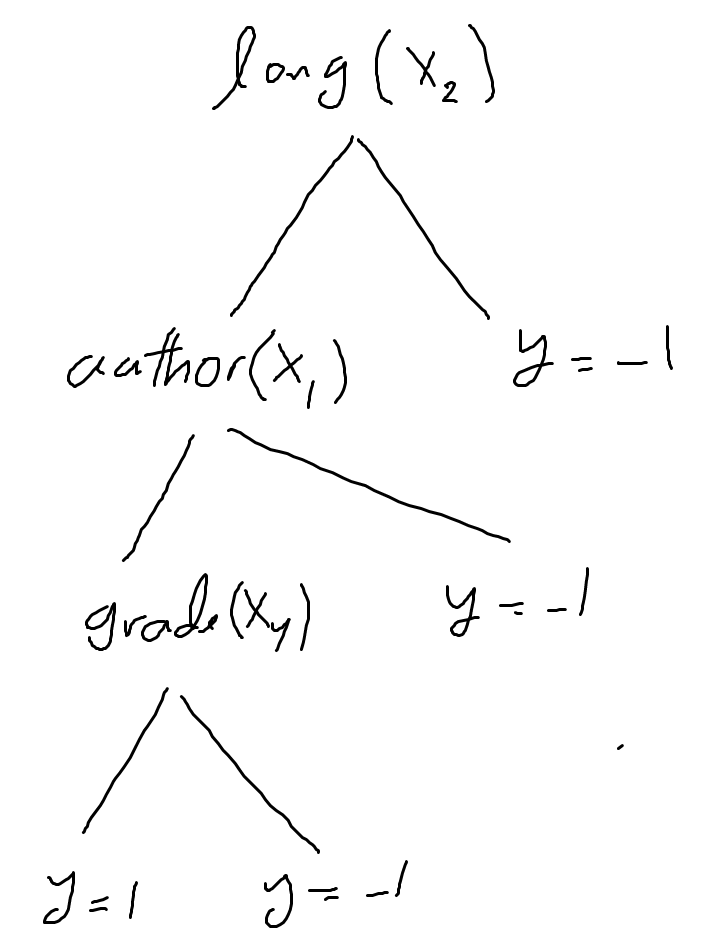 long(x₂)
author(x₁) y = -1
grade(x₄) y = -1
y = 1 y = -1